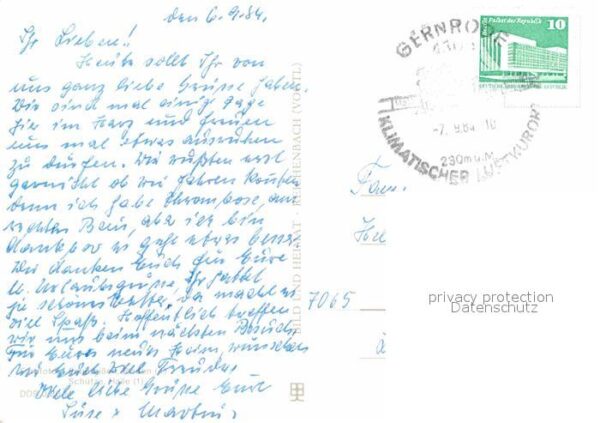 den 6.9.84.
Ihr Lieben!!
Heute sollt Ihr von
uns ganz liebe Grüße haben.
Wir sind mal einige Tage
hier im Harz und freuen
uns mal etwas ausruhen
zu dürfen. Wir wußten erst
garnicht ob wir fahren konnten
denn ich habe Thrombose, am
rechten Bein, aber ich bin
dankbar es geht etwas besser
Wir danken Euch für Eure
lb. Urlaubsgrüße, Ihr hattet
ja schönes Wetter, da macht es
viel Spaß. Hoffentlich treffen
wir uns beim nächsten Besuch.
Für Eures neues Heim wünschen
wir Euch viel Freude.
Viele liebe Grüße Eure
Suse + Martin
BILD UND HEIMAT REICHENBACH (VOGTL)
Schüler, Halle (1)
GERNRODE
-7. 9.84 - 18
230m ü.M.
KLIMATISCHER LUFTKURORT
Berlin Palast der Republik
10
Fam.
7065
à
privacy protection
Datenschutz